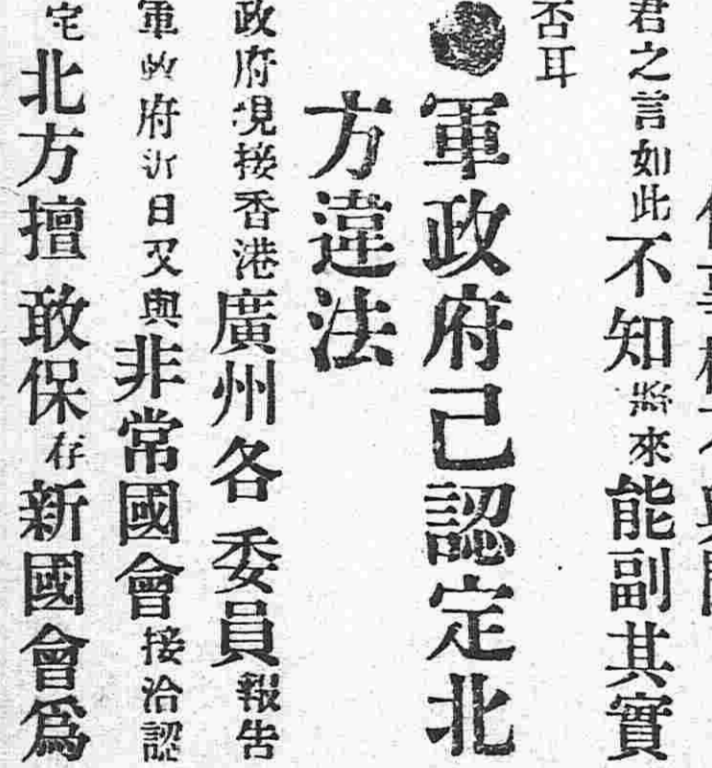 君之言如此不知將來能副其實
否耳
軍政府己認定北
方違法
政府現接香港廣州各委員報告
軍政府近日又與非常國會接洽認
定北方擅敢保存新國會爲